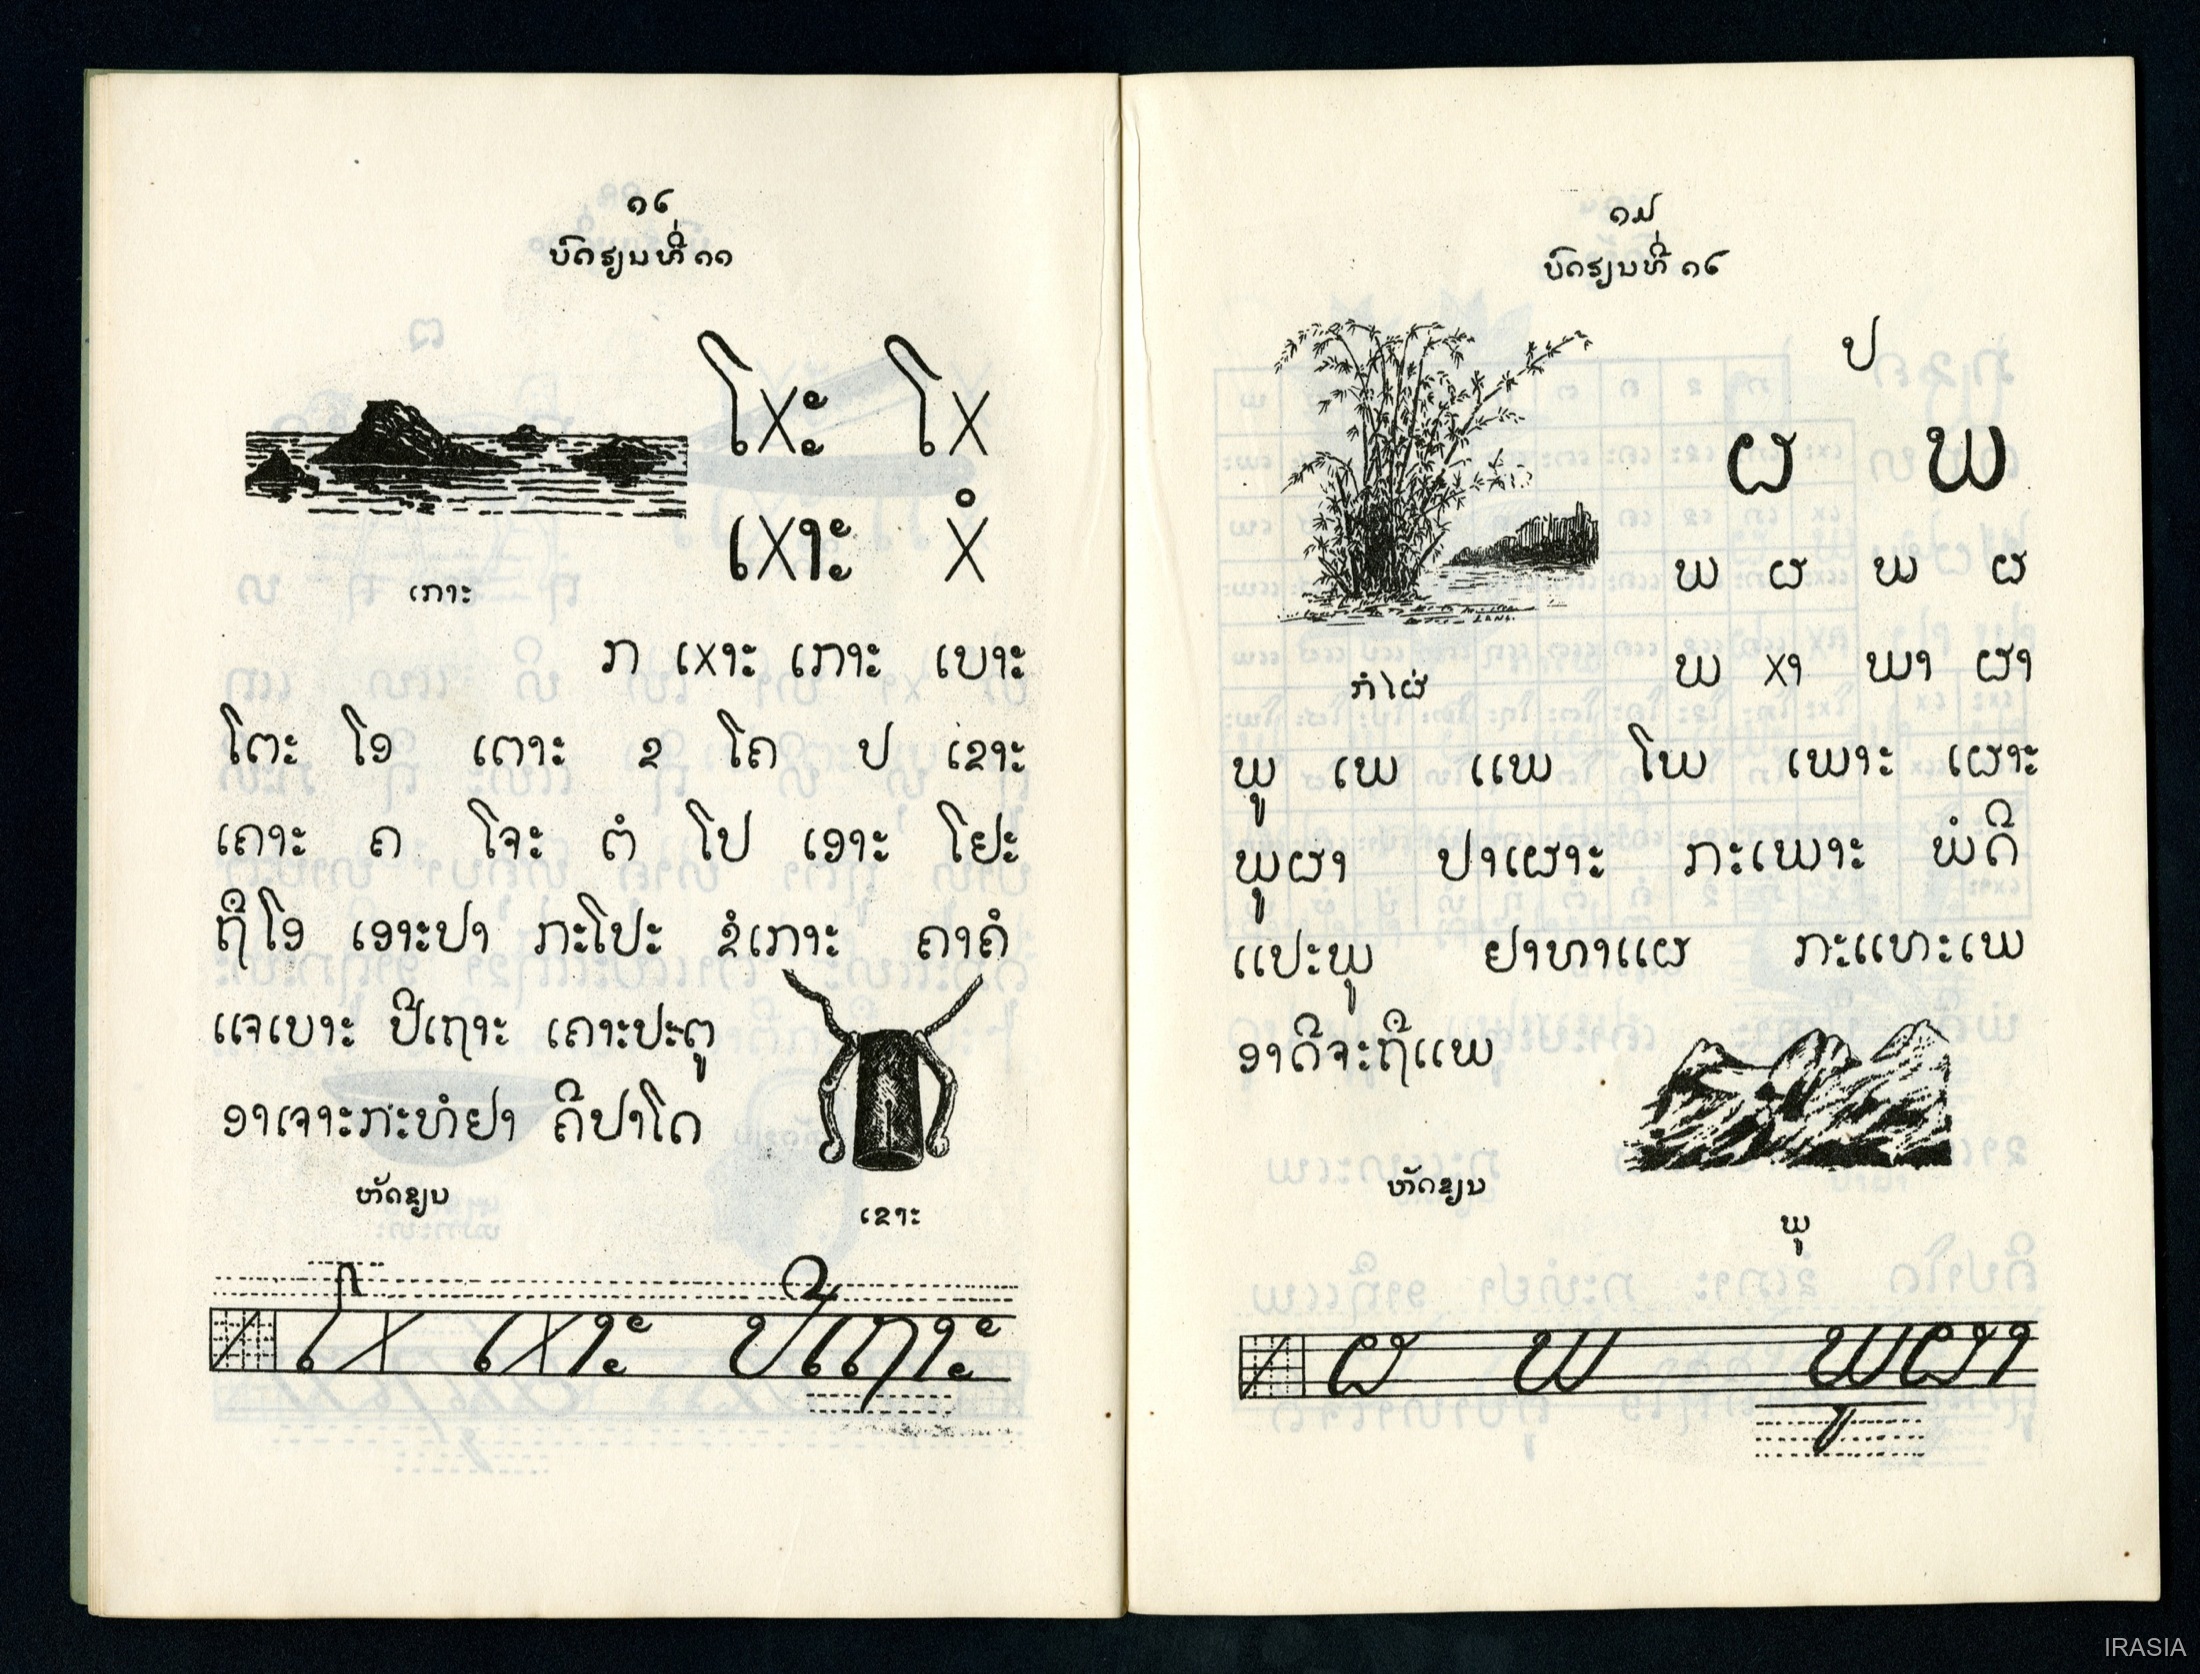 ໑໒
ບົດຮຽນທີ່ ໑໑
ໂxະ ໂx
ເxາະ xໍ
ເກາະ
ກ ເxາະ ເກາະ ເບາະ
ໂຕະ ໂອ ເຕາະ ຂ ໂຄ ປ ເຂາະ
ເຄາະ ຄ ໂຈະ ຕໍ ໂປ ເອາະ ໂຢະ
ຖືໂອ ເອາະປາ ກະໂປະ ຂໍເກາະ ຄາຄໍ
ແຈເບາະ ປີເຖາະ ເຄາະປະຕູ
ອາເຈາະກະທໍຢາ ຄີປາໂດ
ຫັດຂຽນ
ເຂາະ
ໂx ເxາະ ປີເຖາະ
໑໓
ບົດຮຽນທີ່ ໑໒
ປ
ຜ ພ
ພ ຜ ພ ຜ
ກໍໄຜ່
ພ xາ ພາ ຜາ
ພູ ເພ ແພ ໂພ ເພາະ ເຜາະ
ພູຜາ ປາເຜາະ ກະເພາະ ພໍດີ
ແປະພູ ຢາທາແຜ ກະແທະເພ
ອາດີຈະຖືແພ
ຫັດຂຽນ
ພູ
ຜ ພ ພູຜາ
IRASIA